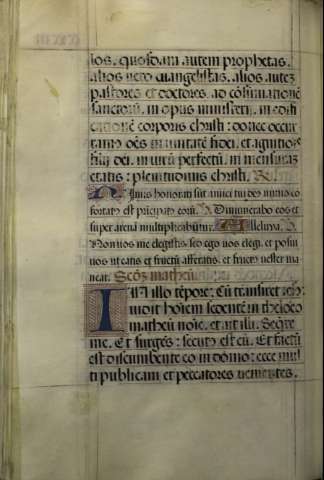 ios. quosdam autem prophetas.
alios vero euangelistas. alios autez
pastores et doctores. ad cōsumationē
sanctorū. in opus ministerii. in edifi
cationē corporis christi : donec occur
ramꝰ oēs in unitatē fidei. et agnitiōis
filii dei. in virū perfectū. in mensuraz
etatis : plenitudinis christi.
Nimis honorati sūt amici tui deꝰ nimis cō
fortatꝰ est prīcipatꝰ eorū. Dinumerabo eos et
super arena multiplicabūtur. Alleluya.
Non vos me elegistis. sed ego vos elegi. et posui
vos ut eatis et fructū afferatis. et fructꝰ vester ma
neat. Scḋm matheū.
In illo tēpore : Cū transiret
vidit hoīem sedentē in theloēo
matheū noīe. et ait illi. Seq̄re
me. Et surgēs : secutꝰ est eū. Et factū
est discumbente eo in domo : ecce mul
ti publicani et peccatores venientes.